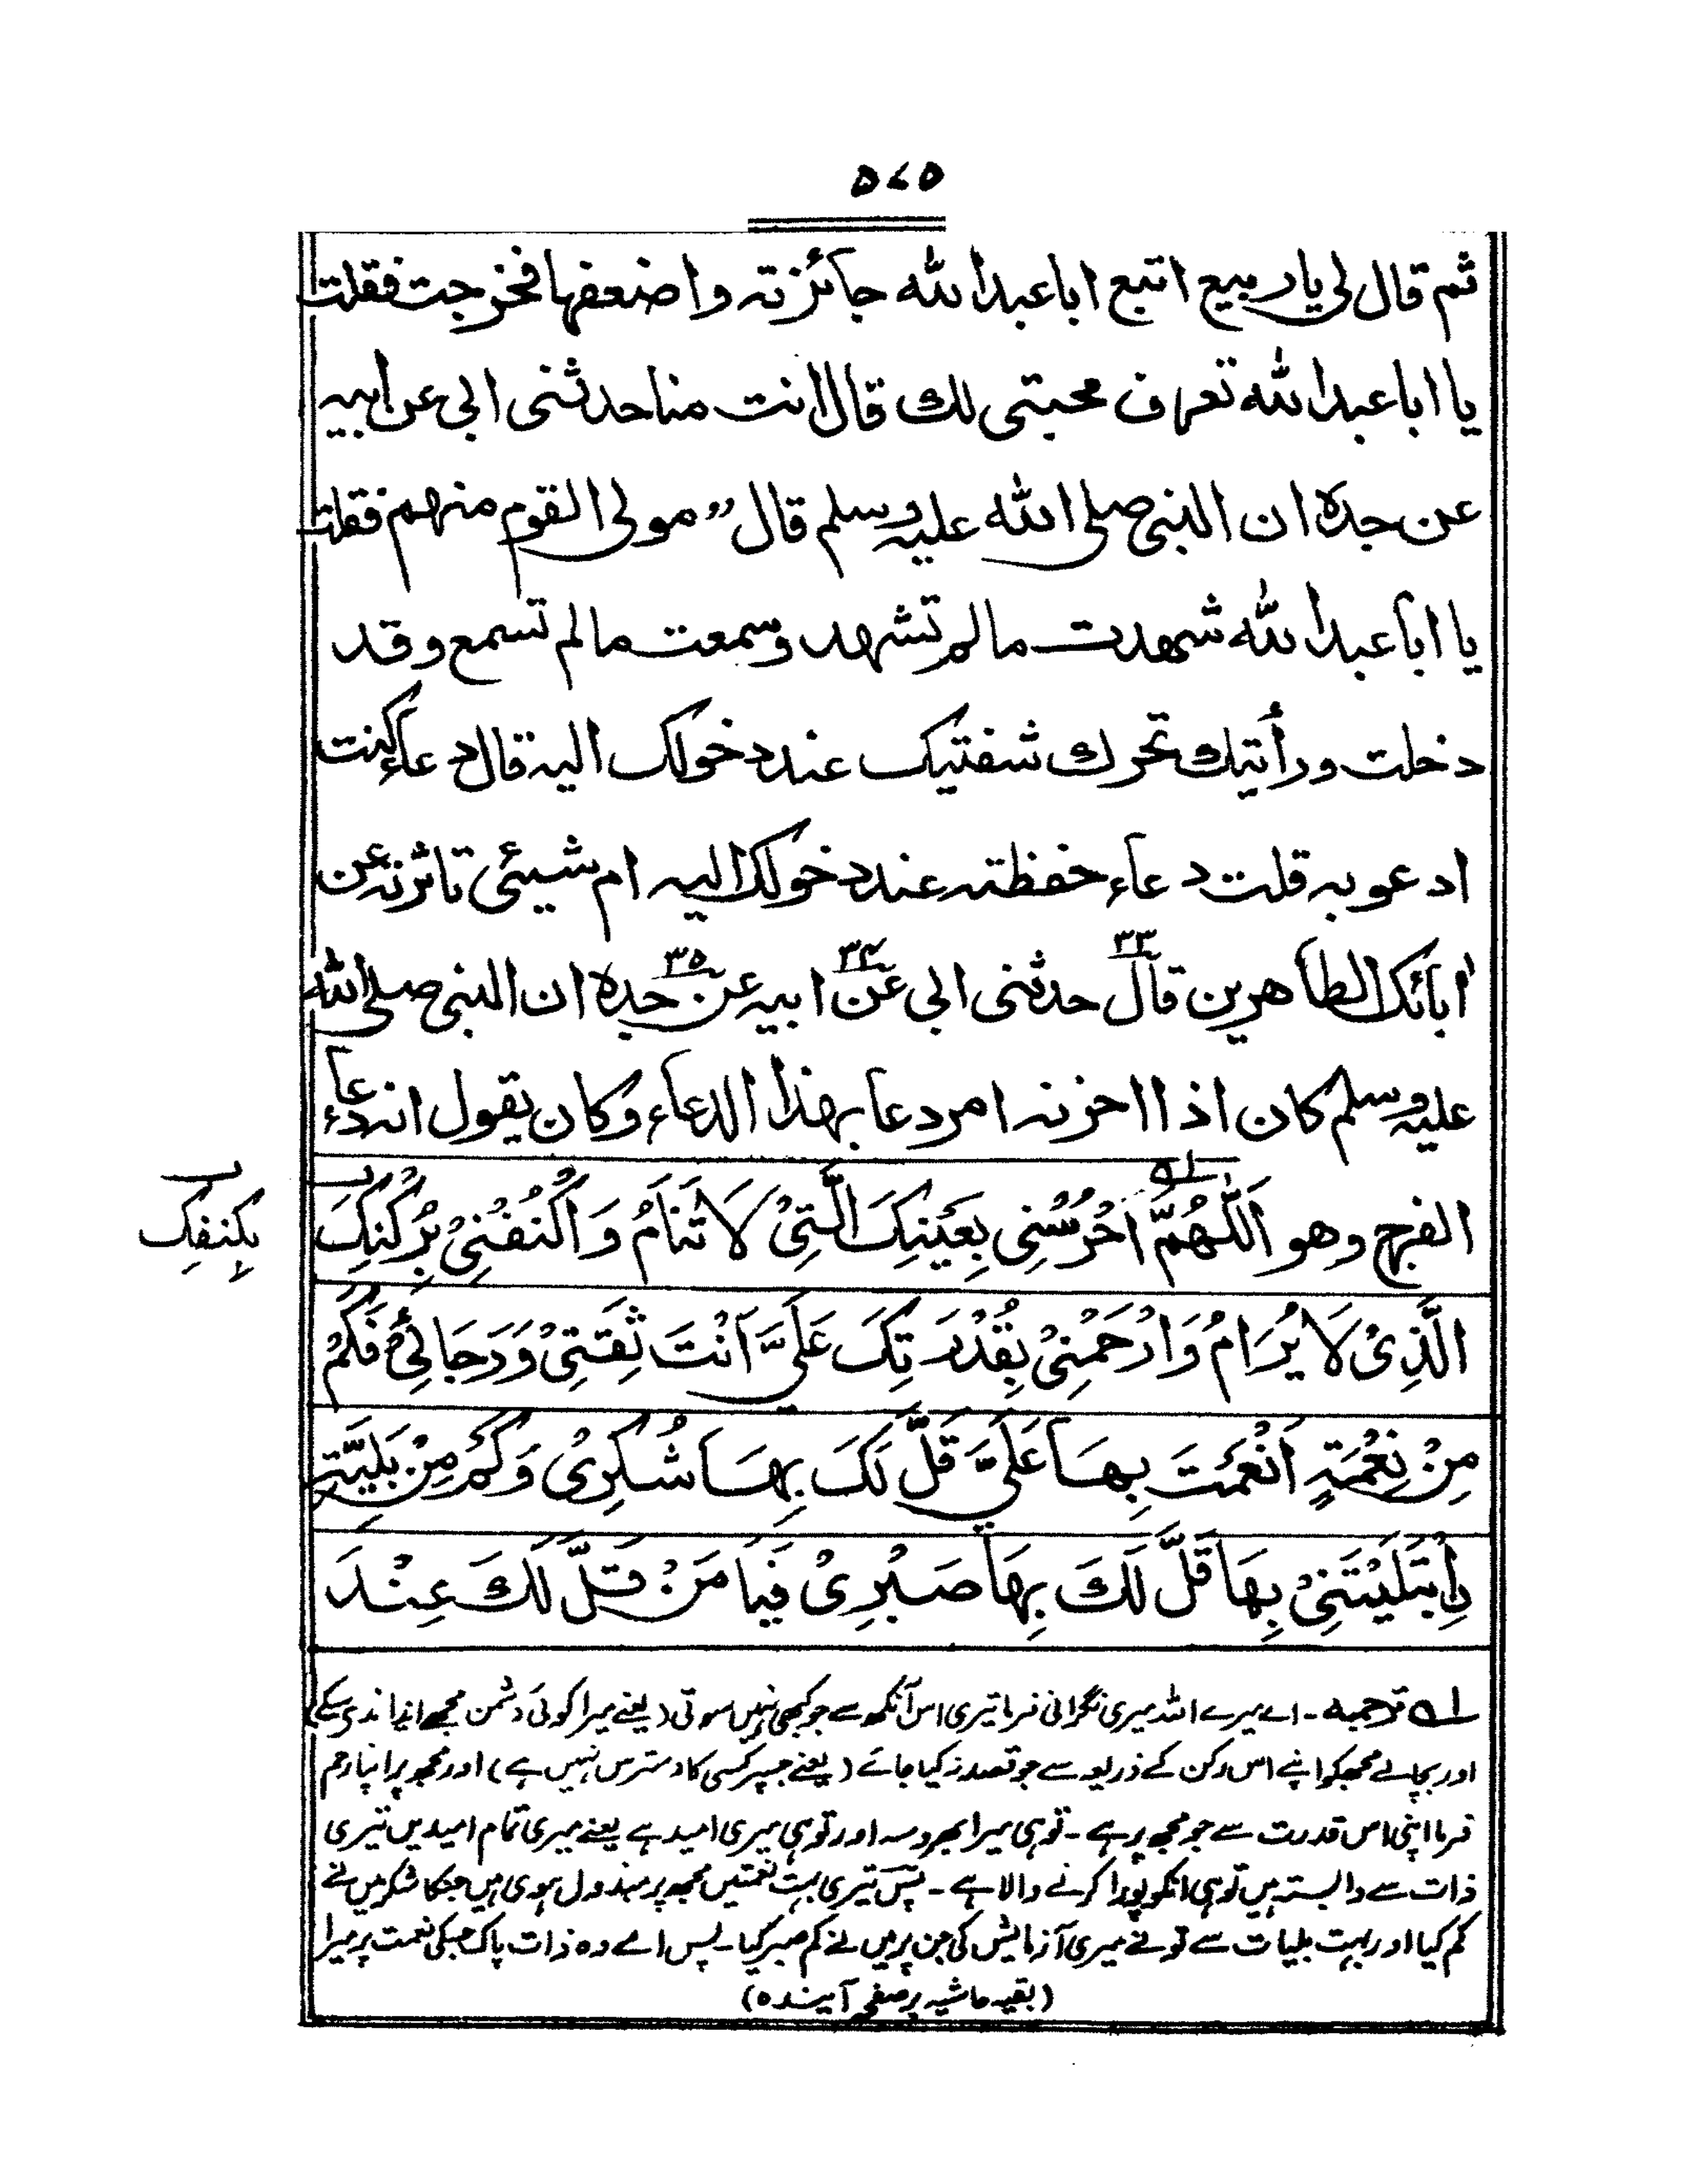 ۵۷۵
ثم قال لی یا ربیع اتبع ابا عبداللہ جائزتہ واضعفہا فخرجت فقلت
یا ابا عبداللہ تعرف محبتی لك قال انت منا حدثنی ابی عن ابیہ
عن جدہ ان النبی صلی اللہ علیہ وسلم قال ”مولی القوم منہم فقلت
یا ابا عبداللہ شھدت مالم تشھد وسمعت مالم تسمع وقد
دخلت ورأیتك تحرك شفتیک عند دخولک الیہ قال دعاء کنت
ادعو بہ قلت دعاء حفظتہ عند دخولک الیہ ام شیئی تاثرنہ عن
ابائک الطاھرین قال ۳۳ حدثنی ابی عن ۳۴ ابیہ عن ۳۵ جدہ ان النبی صلی اللہ
علیہ وسلم کان اذا احزنہ امر دعا بھذا الدعاء وکان یقول انہ دعاء
الفرج وھو اَللّٰھُمَّ ؎۱ احْرُسْنِی بِعَیْنِکَ الَّتِیْ لَا تَنَامُ وَاکْنُفْنِیْ بِرُکْنِکَ
بِکَنَفِکَ
الَّذِیْ لَا یُرَامُ وَارْحَمْنِیْ بِقُدْرَتِکَ عَلَیَّ اَنْتَ ثِقَتِیْ وَرَجَائِیْ فَکَمْ
مِنْ نِعْمَةٍ اَنْعَمْتَ بِھَا عَلَیَّ قَلَّ لَکَ بِھَا شُکْرِیْ وَکَمْ مِنْ بَلِیَّةٍ
اِبْتَلَیْتَنِیْ بِھَا قَلَّ لَكَ بِھَا صَبْرِیْ فَیَا مَنْ قَلَّ لَكَ عِنْدَ
؎۱ ترجمہ ۔ اے میرے اللہ میری نگرانی فرما تیری اس آنکھ سے جو کبھی نہیں سوتی (یعنے میرا کوئی دشمن مجھے ایذا نہ دے سکے)
اور بچالے مجھکو اپنے اس رکن کے ذریعہ سے جو قصد نہ کیا جائے (یعنے جسپر کسی کا دسترس نہیں ہے) اور مجھ پر اپنا رحم
فرما اپنی اس قدرت سے جو مجھ پر ہے ۔ تو ہی میرا بھروسہ اور تو ہی میری امید ہے یعنے میری تمام امیدیں تیری
ذات سے وابستہ ہیں تو ہی انکو پورا کرنے والا ہے ۔ پس تیری بہت نعمتیں مجھ پر مبذول ہوی ہیں جنکا شکر میں نے
کم کیا اور بہت بلیات سے تو نے میری آزمایش کی جن پر میں نے کم صبر کیا ۔ پس اے وہ ذات پاک جسکی نعمت پر میرا
(بقیہ حاشیہ بر صفحہ آیندہ)